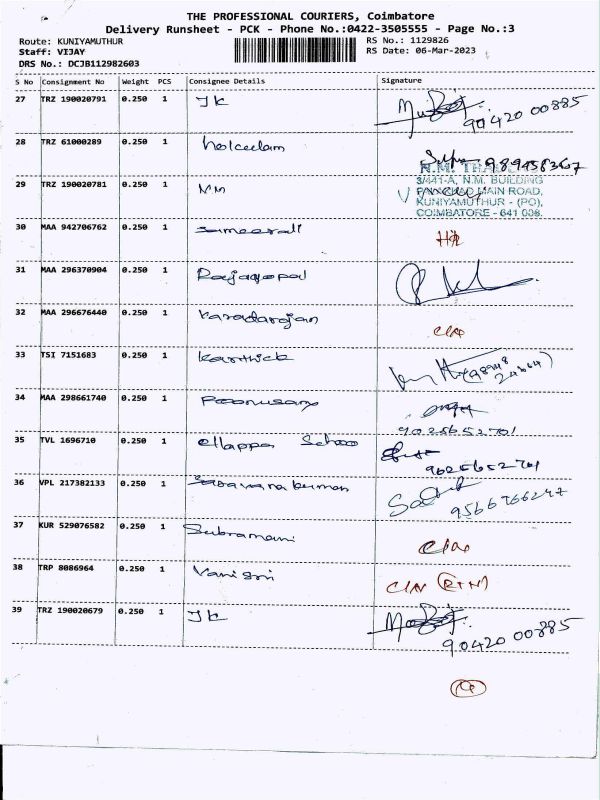 THE PROFESSIONAL COURIERS, Coimbatore
Delivery Runsheet - PCK - Phone No.:0422-3505555 - Page No.:3
Route: KUNIYAMUTHUR RS No.: 1129826
Staff: VIJAY RS Date: 06-Mar-2023
DRS No.: DCJB112982603
S No Consignment No Weight PCS Consignee Details Signature
27 TRZ 190020791 0.250 1 JK
90420 00885
28 TRZ 61000289 0.250 1
29 TRZ 190020781 0.250 1 NM
N.M.
3/441-A, N.M. BUILDING
MAIN ROAD,
KUNIYAMUTHUR - (PO),
COIMBATORE - 641 008.
30 MAA 942706762 0.250 1
31 MAA 296370904 0.250 1 Rajagopal
32 MAA 296676440 0.250 1 Varadarajan
33 TSI 7151683 0.250 1 Karthick
34 MAA 298661740 0.250 1 Ponnusamy
9025652701
35 TVL 1696710 0.250 1 Ellappa School
9025652701
36 VPL 217382133 0.250 1 Saravanakumar
9566766247
37 KUR 529076582 0.250 1 Subramani
38 TRP 8086964 0.250 1 Vanisri
39 TRZ 190020679 0.250 1 JK
90420 00885